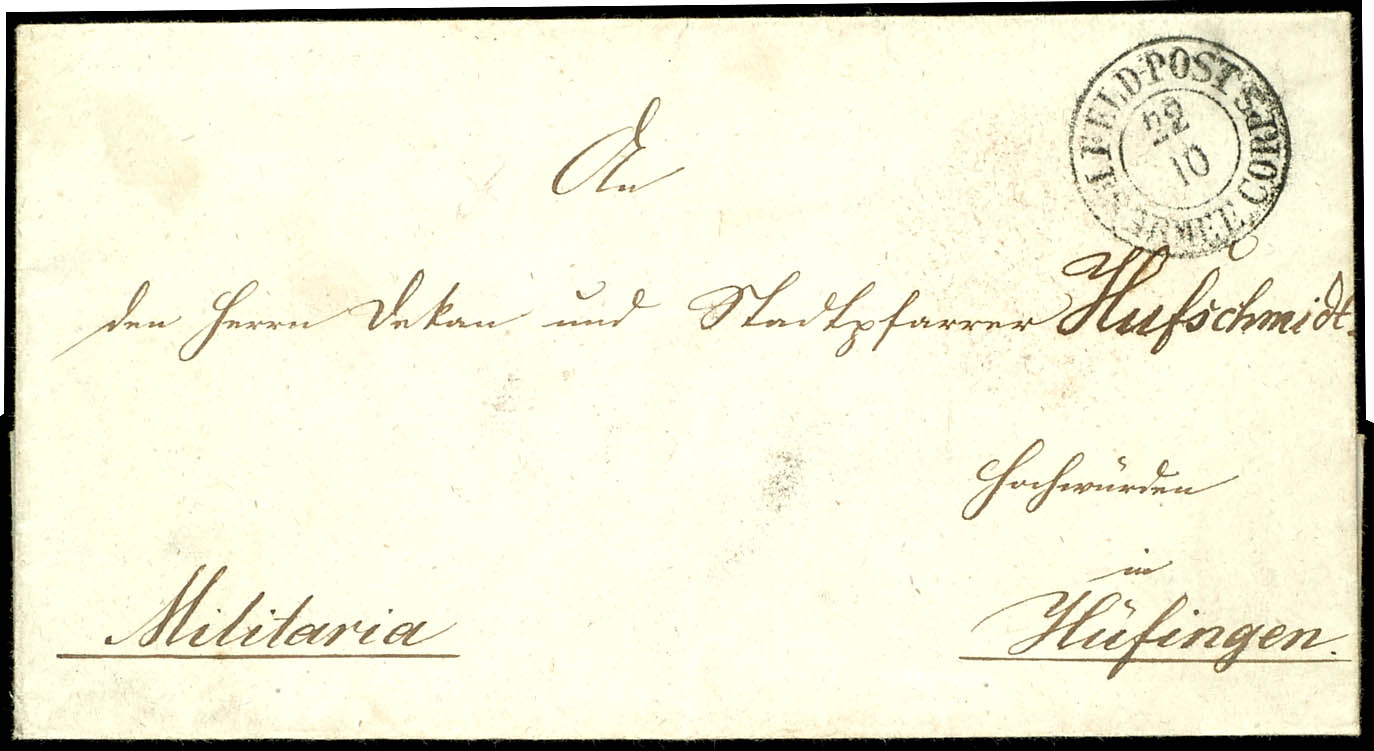 FELD-POST
ARMEE CORPS
22
10
An
den Herrn Dekan und Stadtpfarrer Hufschmidt.
Hochwürden
in
Militaria
Hüfingen.